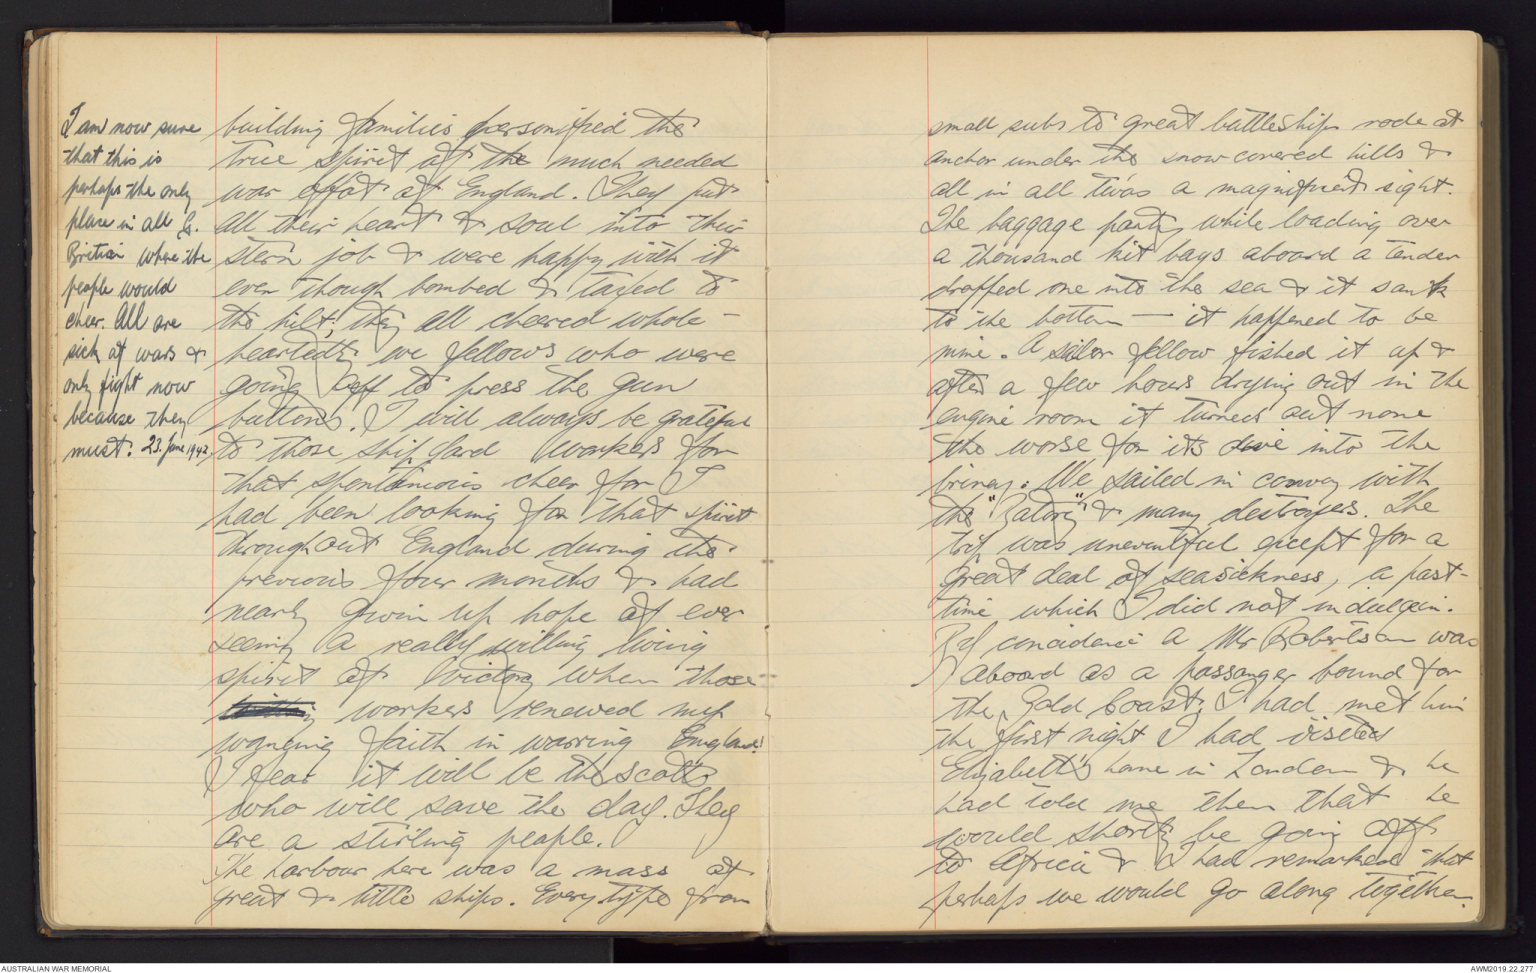 I am now sure
that this is
perhaps the only
place in all G.
Britian where the
people would
cheer. All are
sick of wars &
only fight now
because they
must. 23. June 1942,
building families personified the
true spirit of the much needed
war effort of England. They put
all their heart & soul into their
stern job & were happy with it
even though bombed & taxed to
the hilt; they all cheered whole-
heartedly we fellows who were
going off to press the gun
buttons. I will always be grateful
to those ship yard workers for
that spontanious cheer for I
had been looking for that spirit
throughout England during the
previous four months & had
nearly given up hope of ever
seeing a really willing living
spirit of Victory when those
workers renewed my
wanging faith in warring England!
I fear it will be the "scotts"
who will save the day. They
are a stirling people.
The harbour here was a mass of
great & little ships. Every type from
small subs to great battleships rode at
anchor under the snow covered hills &
all in all twas a magnificent sight.
The baggage party while loading over
a thousand kit bags aboard a tender
dropped one into the sea & it sank
to the bottom — it happened to be
mine. A sailor fellow fished it up &
after a few hours drying out in the
engine room it turned out none
the worse for its dive into the
briney. We sailed in convoy with
the "Batory" & many destroyers. The
trip was uneventful except for a
great deal of seasickness, a past-
time which I did not indulge in.
By concidence a Mr Robertson was
aboard as a passanger bound for
the Gold Coast; I had met him
the first night I had visited
Elizabeth's home in London & he
had told me then that he
would shortly be going off
to Africa & I had remarked that
perhaps we would go along together.
AUSTRALIAN WAR MEMORIAL
AWM2019.22.277